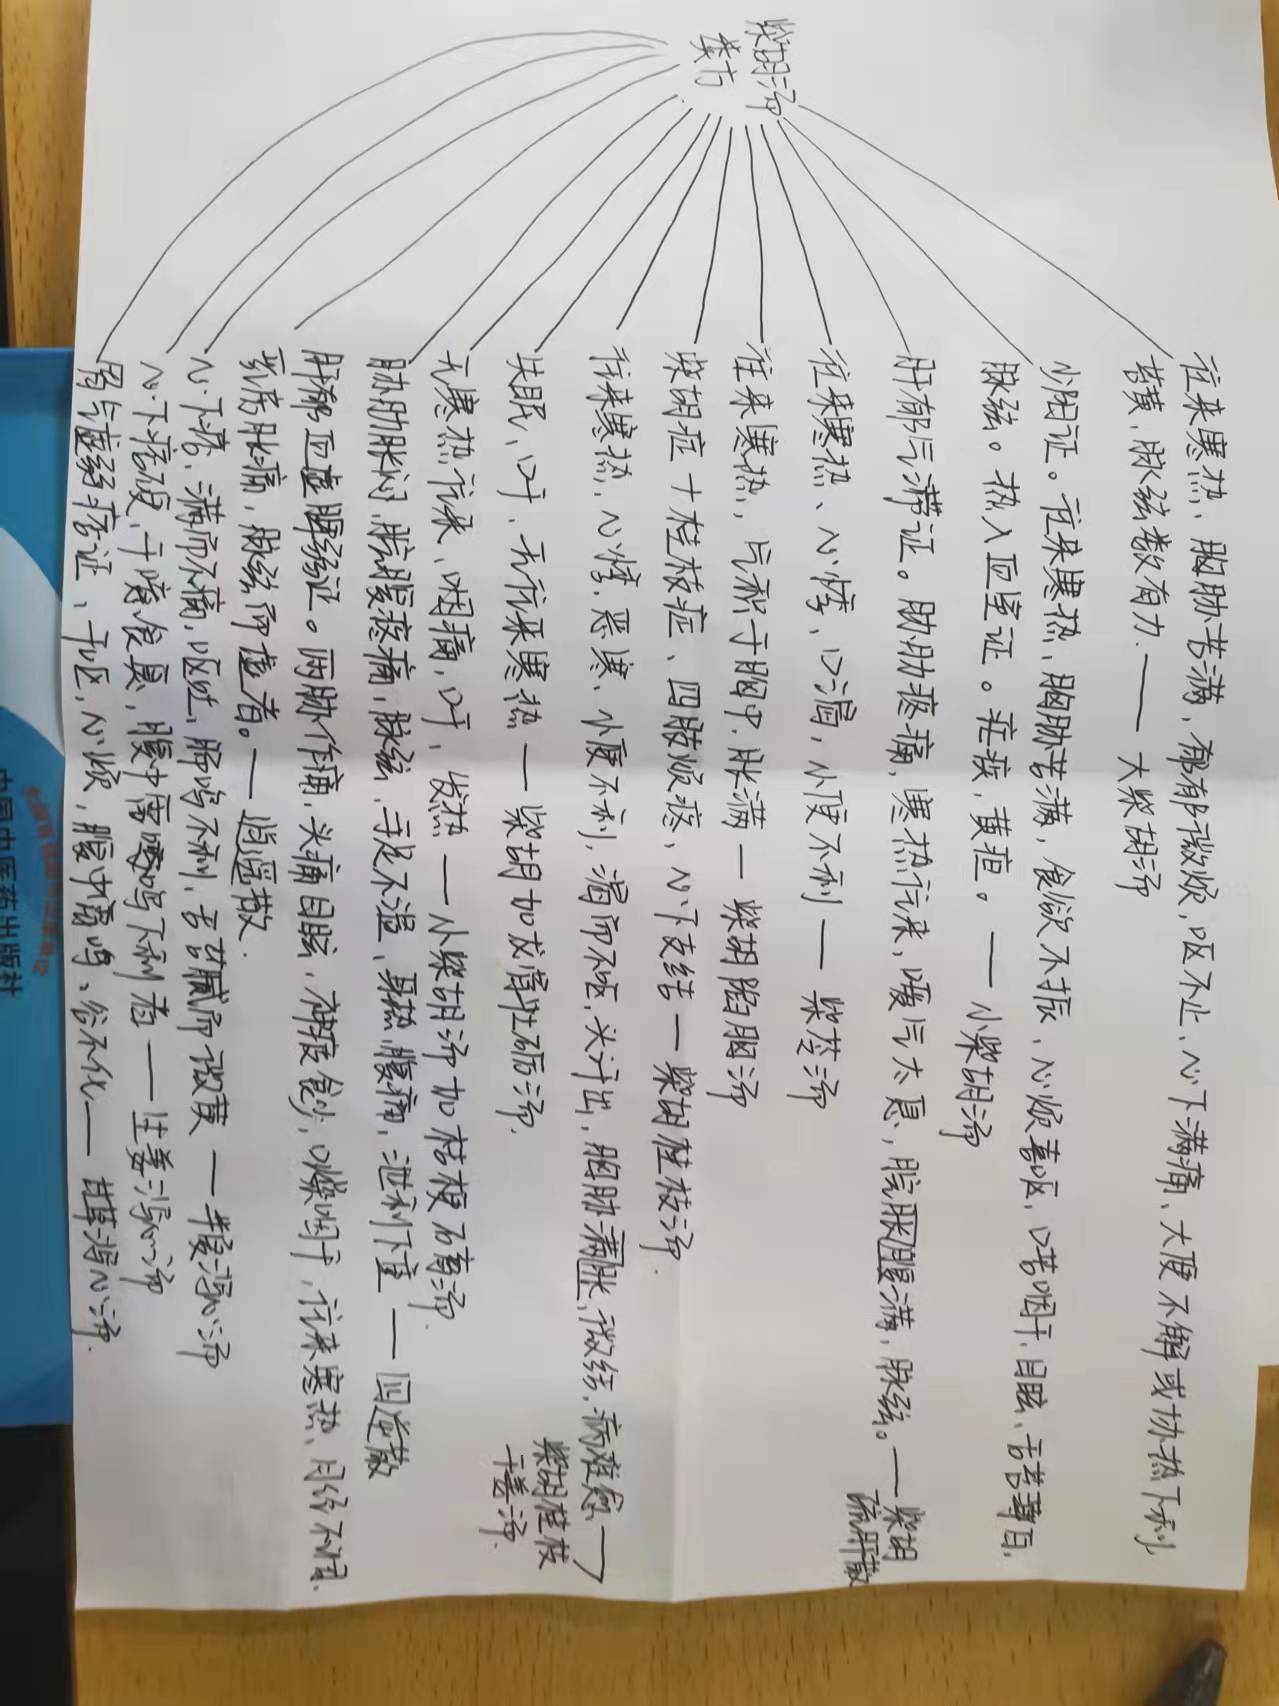 柴胡汤
类方
往来寒热、胸胁苦满，郁郁微烦，呕不止、心下满痛、大便不解或协热下利
苔黄，脉弦数有力. —— 大柴胡汤
少阳证。往来寒热，胸胁苦满，食欲不振、心烦喜呕，口苦咽干，目眩、舌苔薄白，
脉弦。热入血室证。疟疾，黄疸。—— 小柴胡汤
肝郁气滞证。胁肋疼痛，寒热往来，嗳气太息，脘胀腹满，脉弦。—— 柴胡
疏肝散
往来寒热、心悸，口渴，小便不利 —— 柴苓汤
往来寒热，气积于胸中，胀满 — 柴胡陷胸汤
柴胡症十桂枝症、四肢烦疼，心下支结 — 柴胡桂枝汤.
往来寒热，心悸，恶寒、小便不利，渴而不呕，头汗出，胸胁满胀，微结，病难愈 —
柴胡桂枝
干姜汤.
失眠，叶，无往来寒热 — 柴胡加龙骨牡砺汤.
无寒热往来，咽痛，叶，发热 —— 小柴胡汤加桔梗石膏汤.
胁肋胀闷，脘腹疼痛，脉弦，手足不温，身热，腹痛，泄利下重 —— 四逆散
肝郁血虚脾弱证。两胁作痛，头痛目眩，神疲食少，口燥咽干，往来寒热，月经不调.
乳房胀痛，脉弦而虚者。— 逍遥散.
心下痞，满而不痛，呕吐，肠鸣下利，舌苔腻而微黄 — 半夏泻心汤
心下痞硬，干噫食臭，腹中雷鸣下利者 —— 生姜泻心汤
胃气虚弱痞证，干呕，心烦，腹中雷鸣、谷不化 —— 甘草泻心汤.
中国中医药出版社